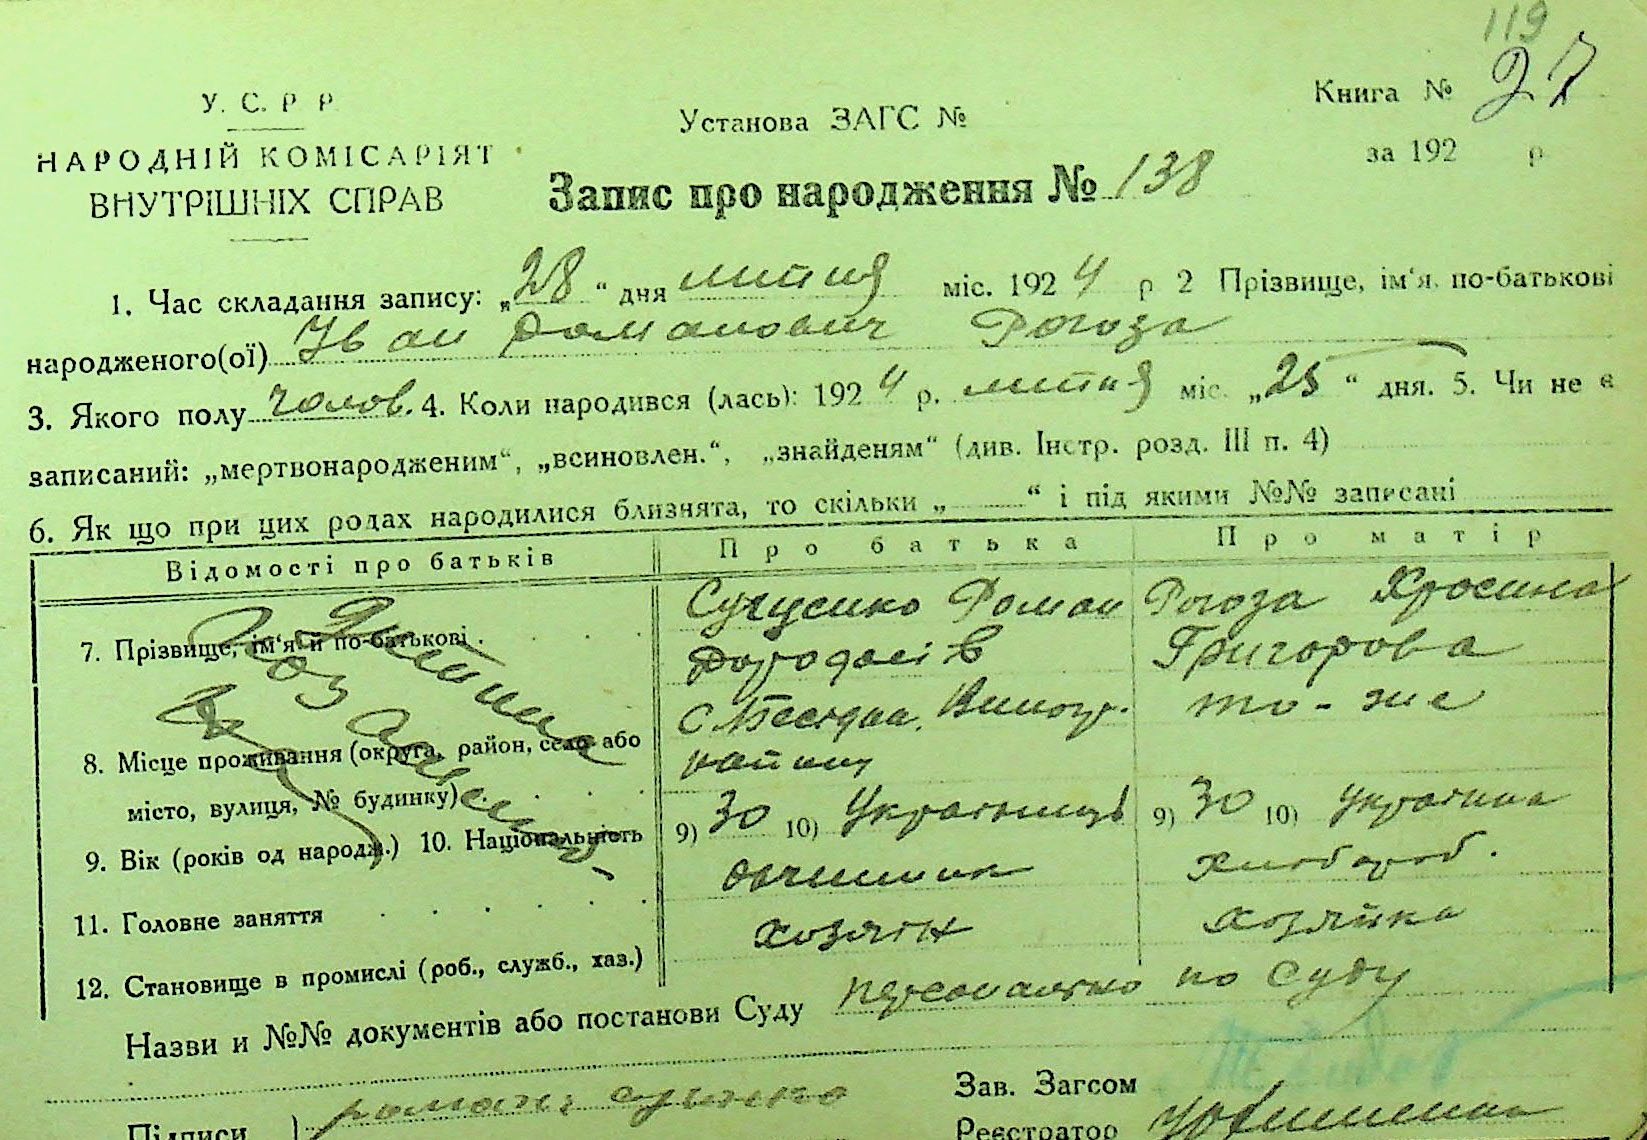 119
У. С. Р Р
Книга № 27
Установа ЗАГС №
НАРОДНІЙ КОМІСАРІЯТ
за 192 р
ВНУТРІШНІХ СПРАВ
Запис про народження № 138
1. Час складання запису: „28“ дня липня міс. 1924 р 2 Прізвище, ім‘я, по-батькові
народженого(ої) Іван Романович Рогоза
3. Якого полу чолов. 4. Коли народився (лась): 1924 р. липня міс. „25“ дня. 5. Чи не є
записаний: „мертвонародженим“, „всиновлен.“, „знайденям“ (див. Інстр. розд. III п. 4)
6. Як що при цих родах народилися близнята, то скільки „ “ і під якими №№ записані
Відомості про батьків Про батька Про матір
7. Прізвище, ім‘я й по-батькові Роман Рогоза
Григорова
8. Місце проживання (округа, район, село або то-же
місто, вулиця, № будинку)
9. Вік (років од народж.) 10. Національність 9) 30 10) Українець 9) 30 10) українка
11. Головне заняття хлібороб.
12. Становище в промислі (роб., служб., хаз.) хозяїн хозяйка
Назви и №№ документів або постанови Суду персонально по суду
Зав. Загсом
Підписи роман
Реєстратор